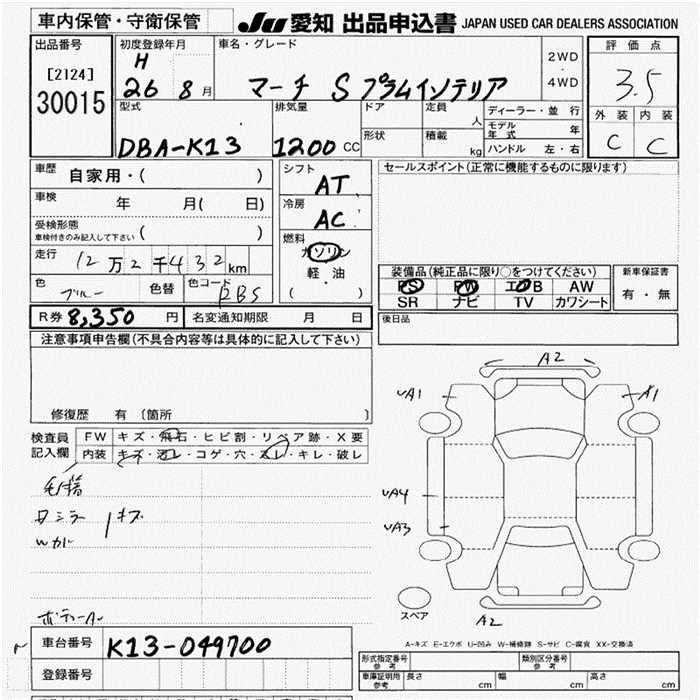 車内保管・守衛保管
JU 愛知 出品申込書 JAPAN USED CAR DEALERS ASSOCIATION
出品番号
[2124]
30015
初度登録年月
H
26 8 月
車名・グレード
マーチ S プラムインテリア
2WD
・
4WD
評価点
3.5
外装 内装
C C
型式
DBA-K13
排気量
1200 CC
ドア
形状
定員
人
積載
kg
ディーラー・並行
モデル年式 年
ハンドル 左・右
車歴
自家用・( )
車検 年 月( 日)
受検形態
車検付きのみ記入して下さい ( )
走行 12万2千432km
色 ブルー 色替 色コード RBS
シフト
AT
冷房
AC
燃料
ガソリン
軽・油
( )
セールスポイント(正常に機能するものに限ります)
装備品(純正品に限り○をつけてください)
PS PW エアB AW
SR ナビ TV カワシート
新車保証書
有・無
後日品
R券 8,350 円 名変通知期限 月 日
注意事項申告欄(不具合内容等は具体的に記入して下さい)
修復歴 有 〔箇所 〕
検査員
記入欄
FW キズ・飛石・ヒビ割・リペア跡・X要
内装 キズ・汚レ・コゲ・穴・スレ・キレ・破レ
A2
UA1
A1
UA4
UA3
A2
スペア
A-キズ E-エクボ U-凹み W-補修跡 S-サビ C-腐食 XX-交換済
車台番号 K13-049700
登録番号
形式指定番号
参考
類別区分番号
参考
車庫証明用
参考
長さ cm 幅 cm 高さ cm